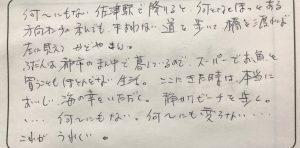 何〜にもない 佐津駅で降りると、何となくほっとする
方向わかれんでも まよわない 道を歩いて橋を渡れば
左に見える みどやさん。
ふだんは都市のまん中で暮しているので、スーパーでお魚を
買うこともほとんどない生活。ここにきた時は、本当に
おいしい海の幸をいただく。静かなビーチを歩く。
・・・・何〜にもない。何〜にも変らない・・・・
これがうれしい。